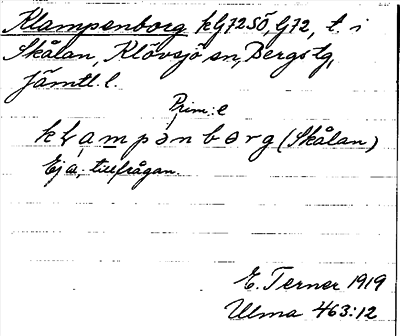 Klampenborg kG72SÖ, G72, t. i
Skålan, Klövsjö sn, Bergs tg,
Jämtl. l.
Prim: e
klampənborg (Skålan)
Ej a; tillfrågan.
E. Terner 1919
Ulma 463:12